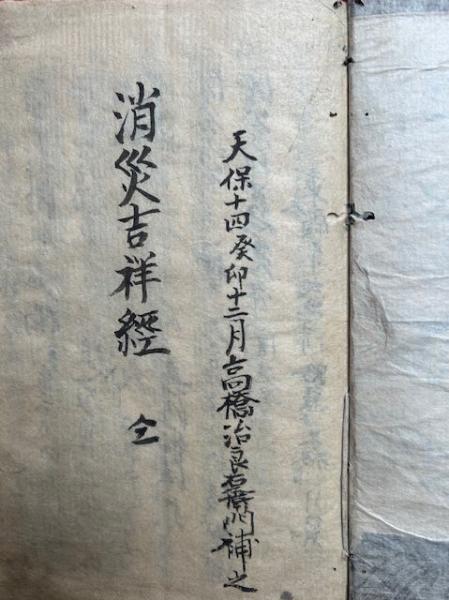 天保十四癸卯十二月高橋治良右衛門補之
消災吉祥經 全